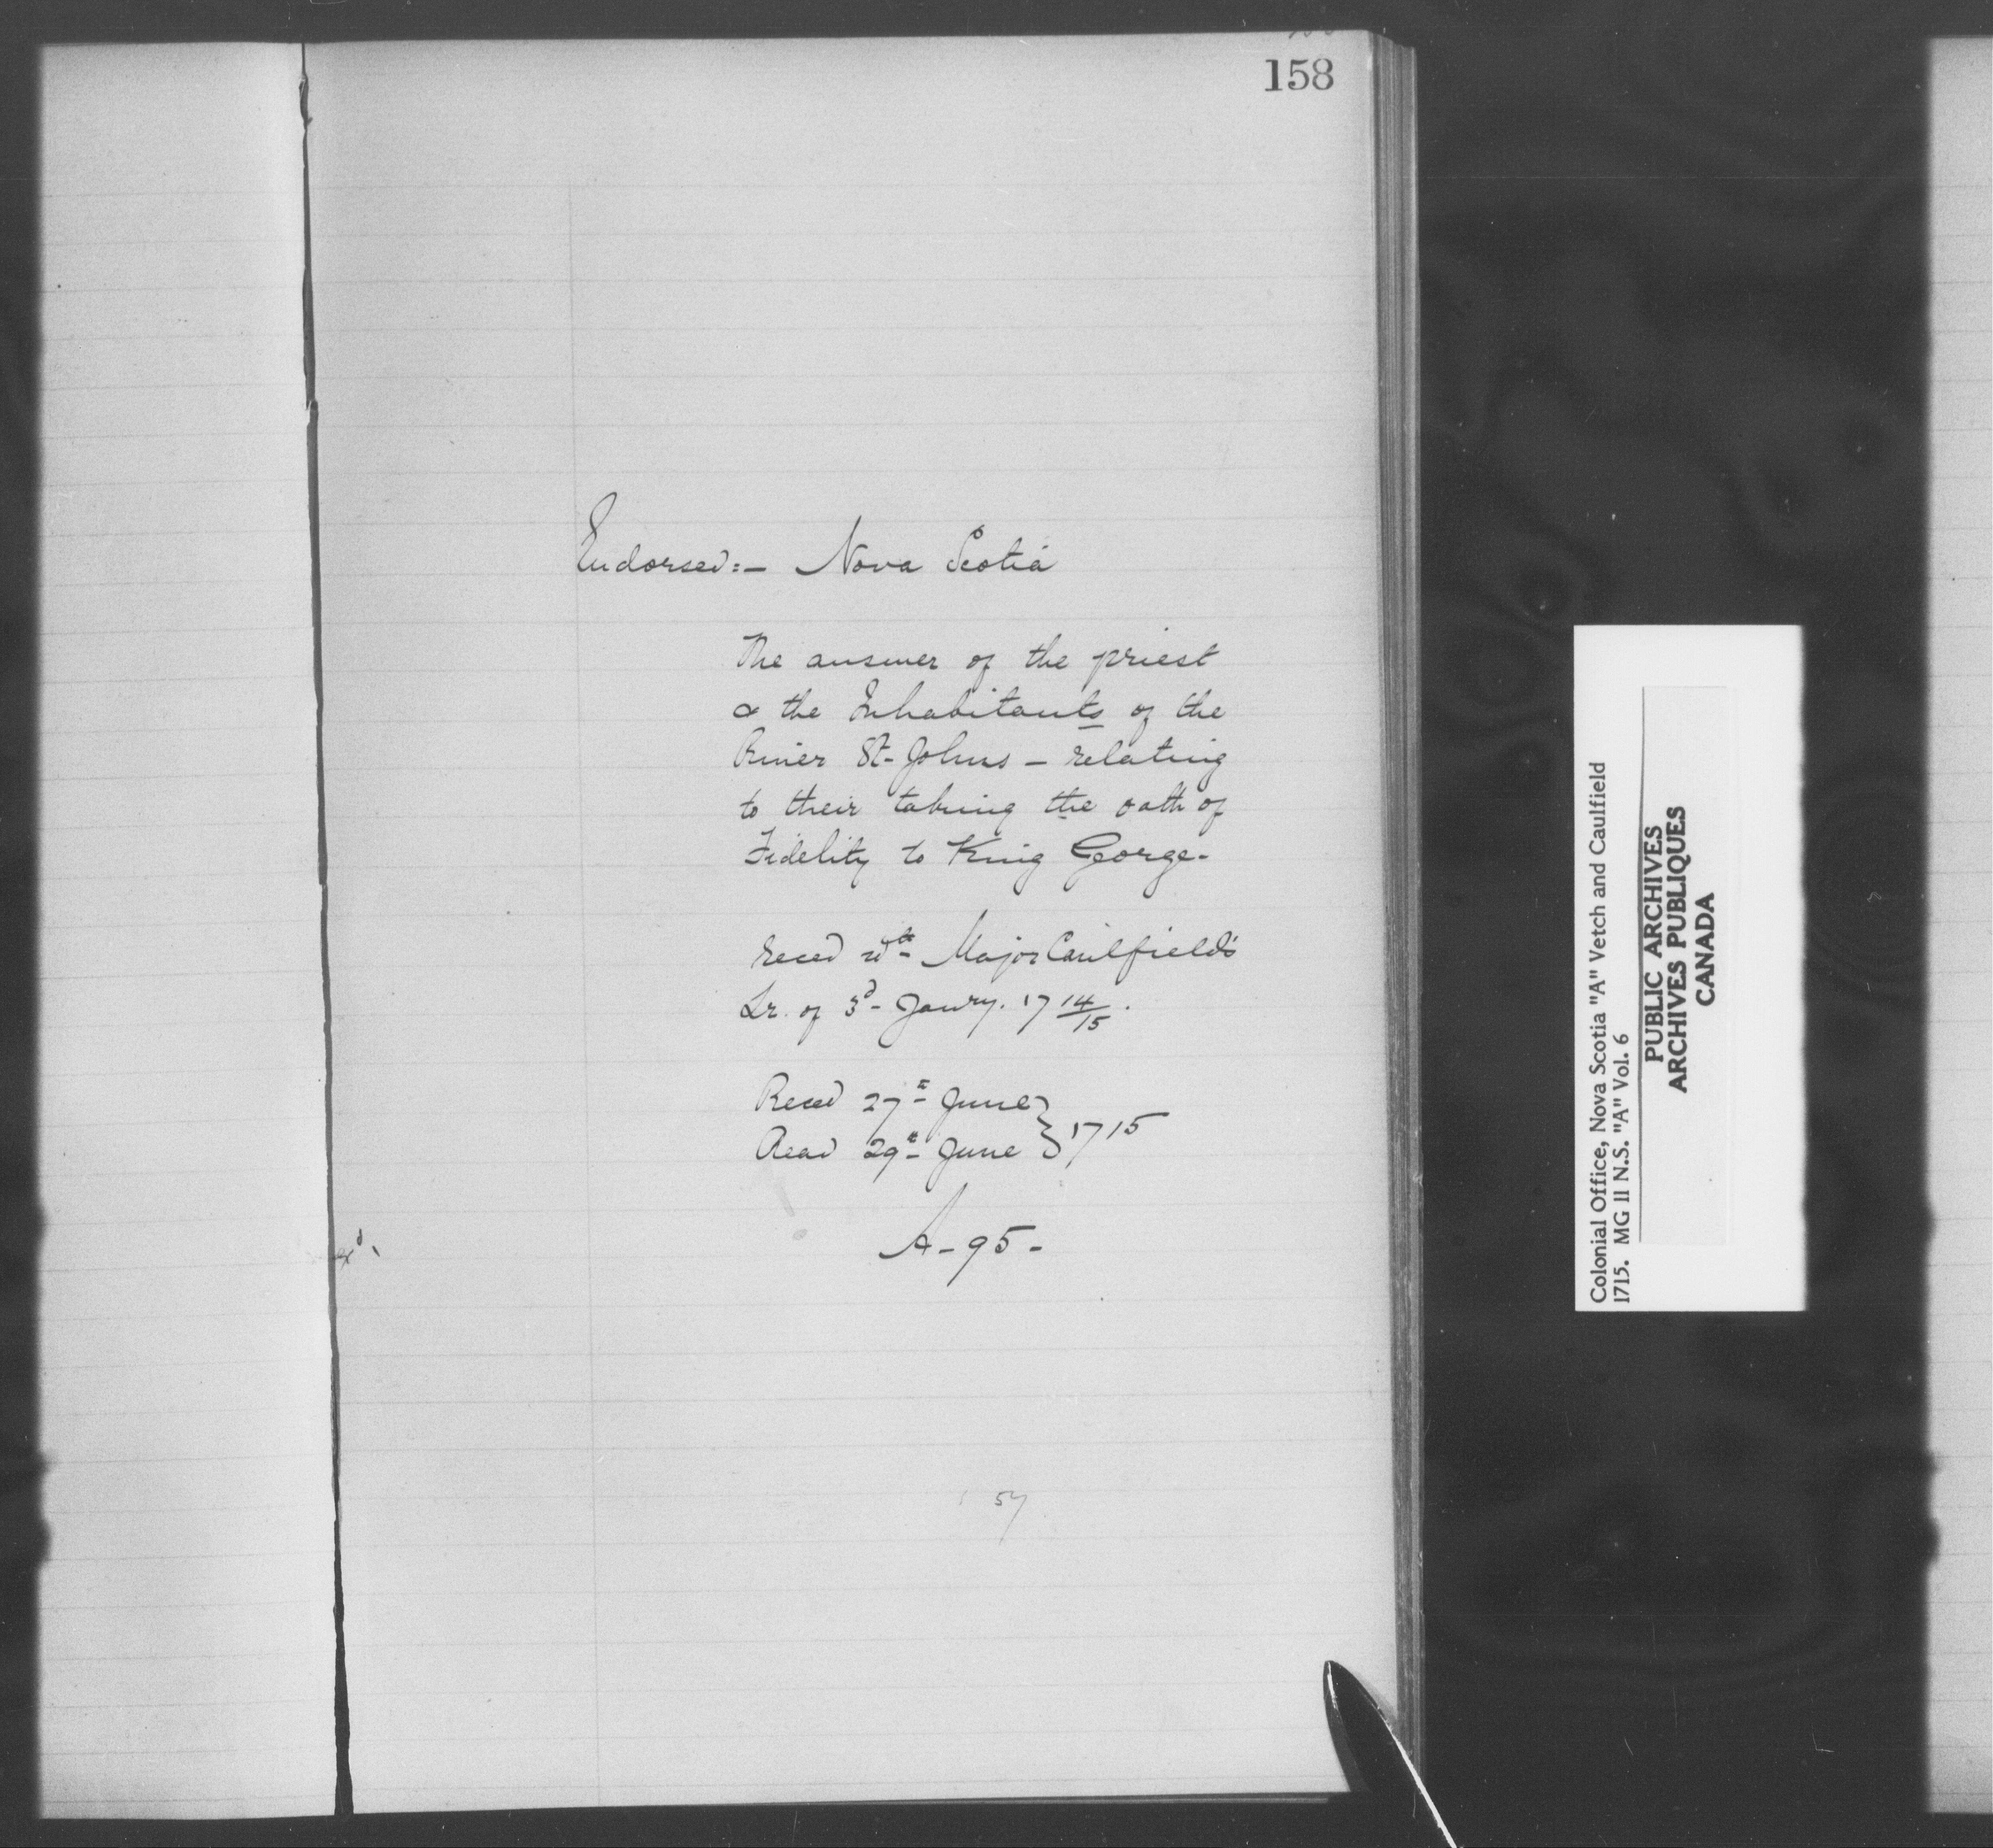 158
Endorsed:- Nova Scotia
The answer of the priest
& the Inhabitants of the
River St-Johns - relating
to their taking the oath of
Fidelity to King George.
reced wth Major Caulfield's
Lr. of 3d Janry. 17 14/15.
Reced 27th June } 1715
Read 29th June
A-95-
exd.
57
Colonial Office, Nova Scotia "A" Vetch and Caulfield
1715. MG 11 N.S. "A" Vol. 6
PUBLIC ARCHIVES
ARCHIVES PUBLIQUES
CANADA